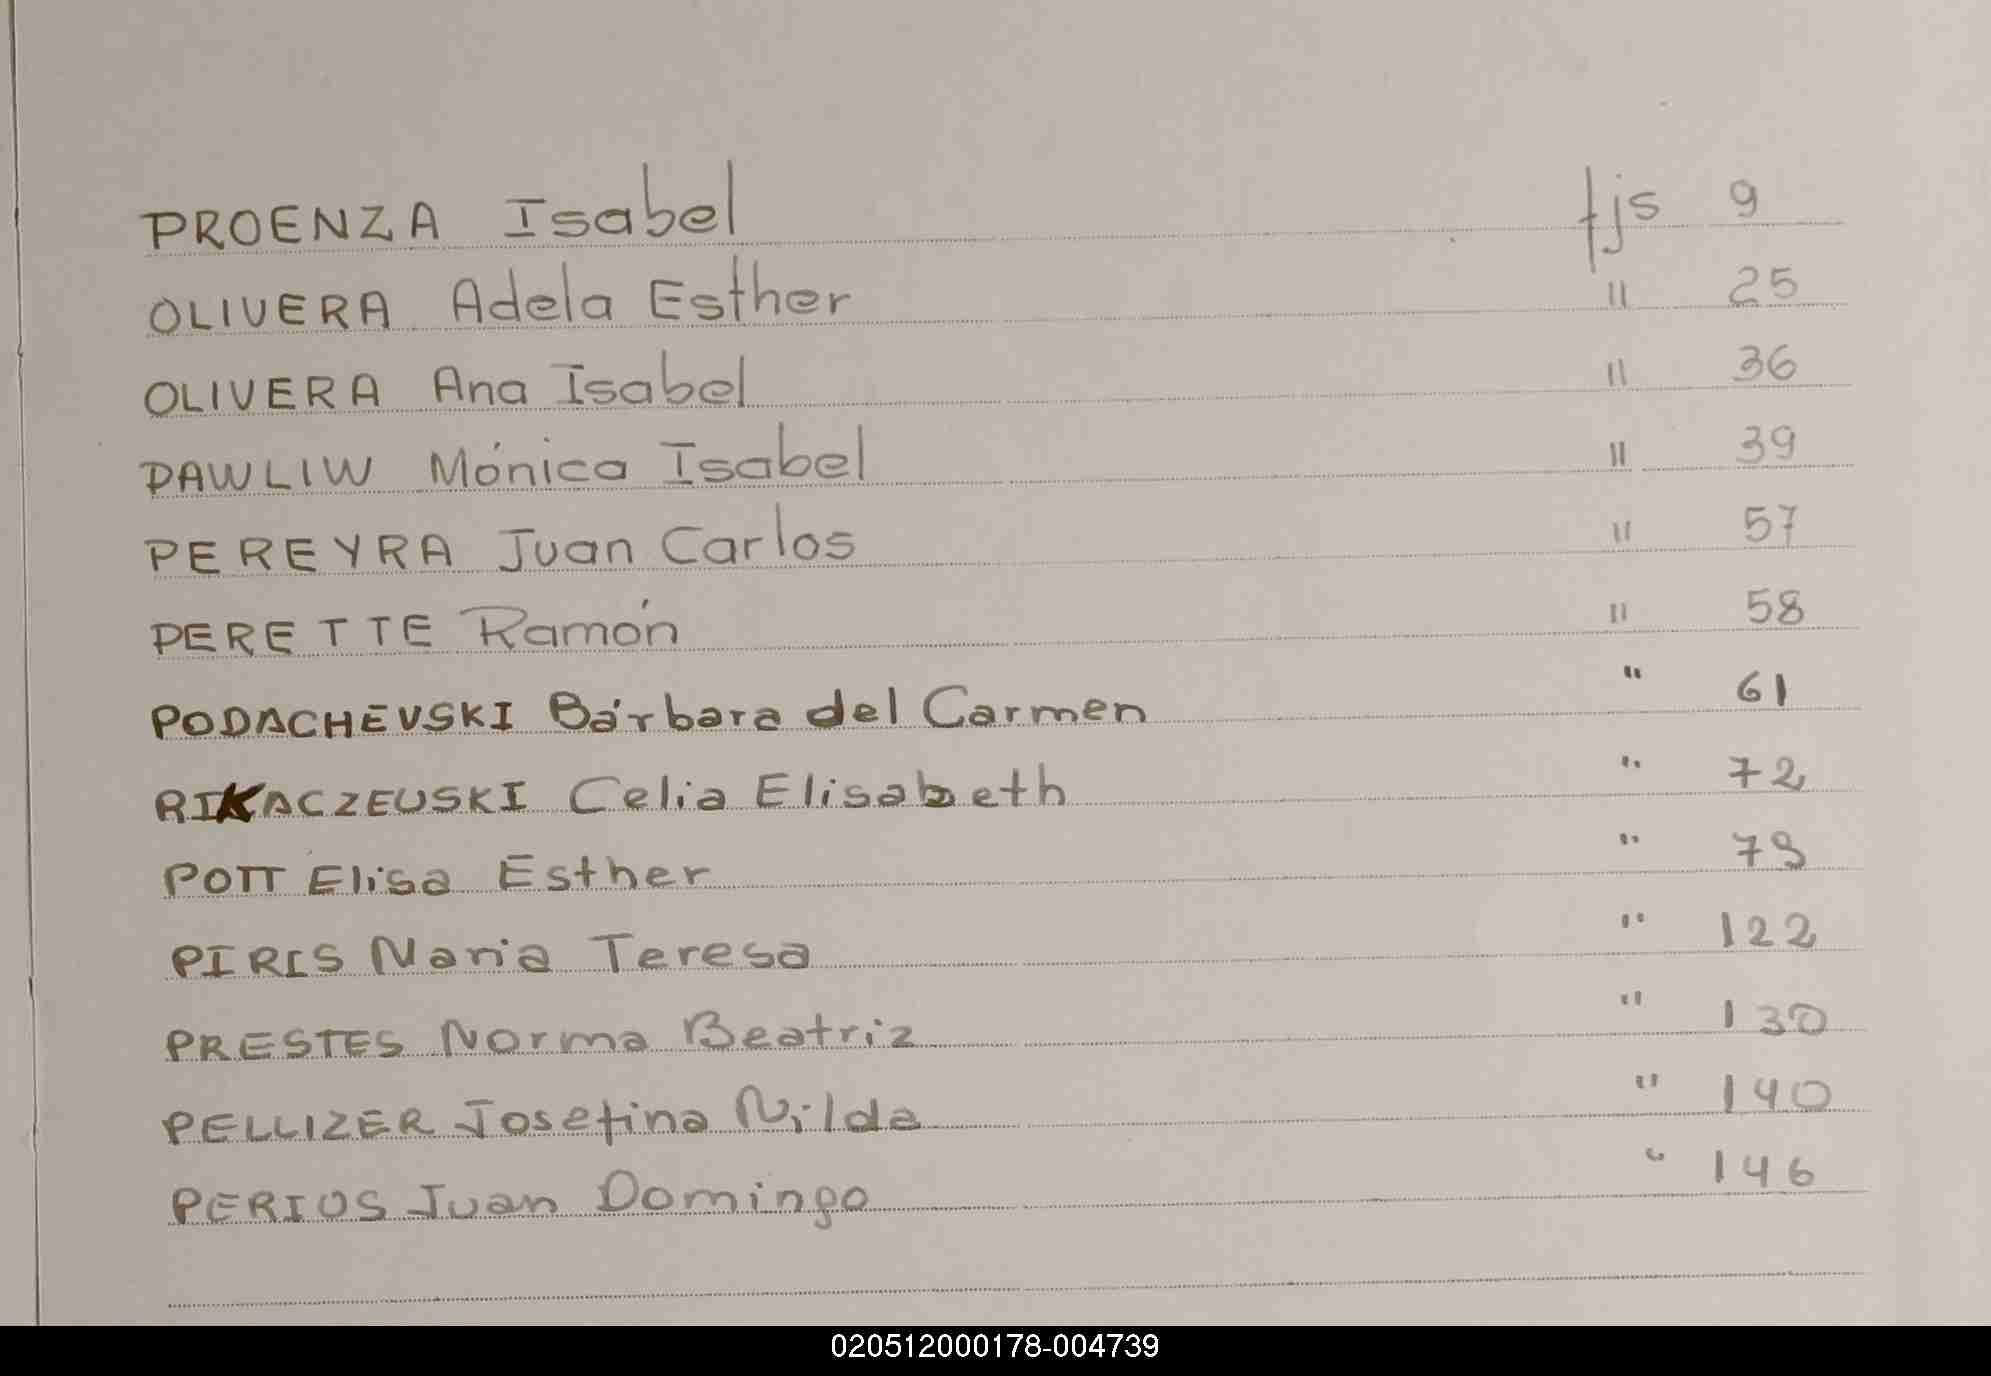 PROENZA Isabel fjs 9
OLIVERA Adela Esther " 25
OLIVERA Ana Isabel " 36
PAWLIW Mónica Isabel " 39
PEREYRA Juan Carlos " 57
PERETTE Ramón " 58
PODACHEVSKI Bárbara del Carmen " 61
RIKACZEUSKI Celia Elisabeth " 72
POTT Elisa Esther "
PIRIS Maria Teresa " 122
PRESTES Norma Beatriz " 130
PELLIZER Josefina Nilda " 140
PERIOS Juan Domingo " 146
020512000178-004739